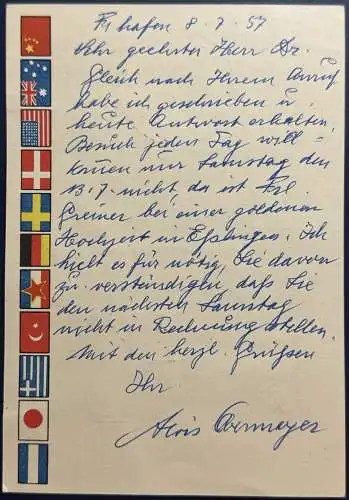 Fr'hafen 8.7.57
Sehr geehrter Herr Dr.
Gleich nach Ihrem Anruf
habe ich geschrieben u.
heute Antwort erhalten.
Besuch jeden Tag will-
komen nur Samstag den
13.7. nicht, da ist Frl.
Greiner bei einer goldenen
Hochzeit in Eßlingen. Ich
hielt es für nötig Sie davon
zu verständigen, daß Sie
den nächsten Samstag
nicht in Rechnung stellen.
Mit den herzl. Grüßen
Ihr
Alois Obermayer